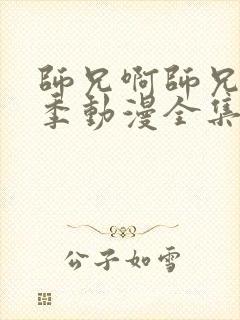 師兄啊師兄
季動漫全集
公子如雪